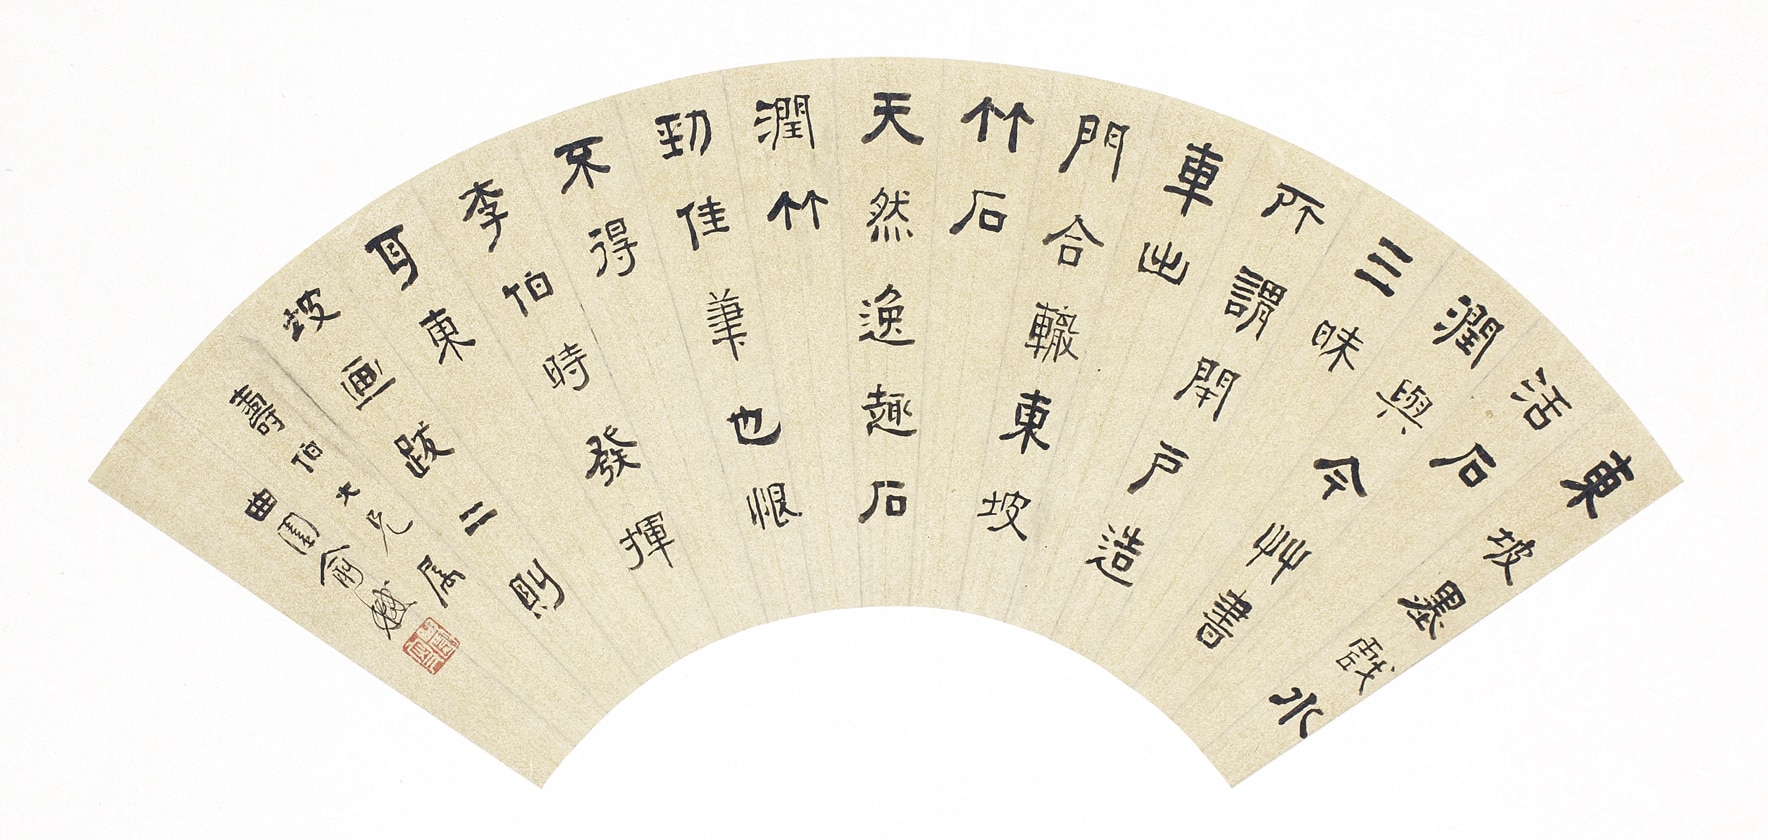 東坡墨戲水
活石
潤與今艸書
三昧
所謂閉戶造
車出
門合轍東坡
竹石
天然逸趣石
潤竹
勁佳筆也恨
不得
李伯時發揮
耳東
坡画跋二則
壽伯大兄属
曲園俞樾